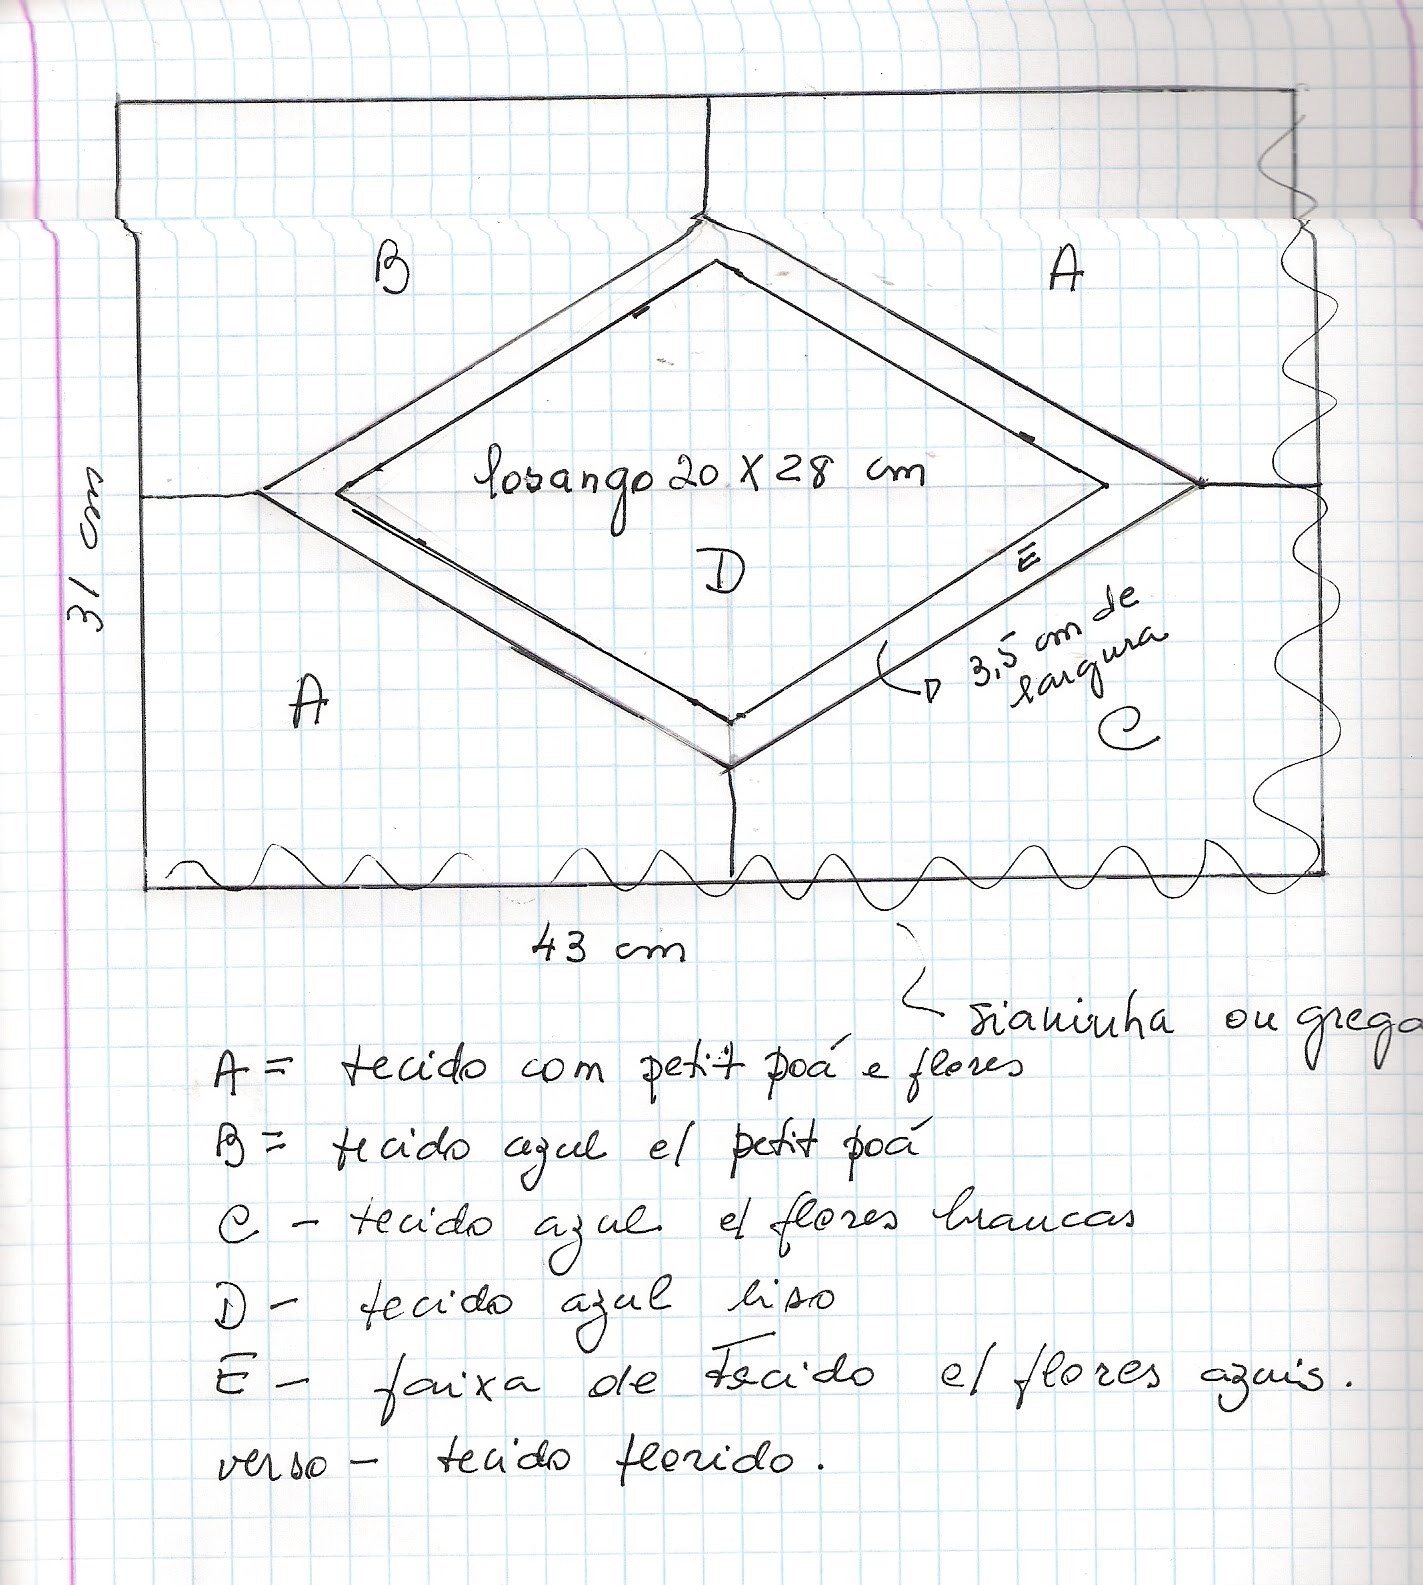 B
A
losango 20 X 28 cm
D
E
31 cm
3,5 cm de
largura
A
C
43 cm
sianinha ou grega
A = tecido com petit poá e flores
B = tecido azul c/ petit poá
C - tecido azul c/ flores brancas
D - tecido azul liso
E - faixa de Tecido c/ flores azuis.
verso - tecido florido.